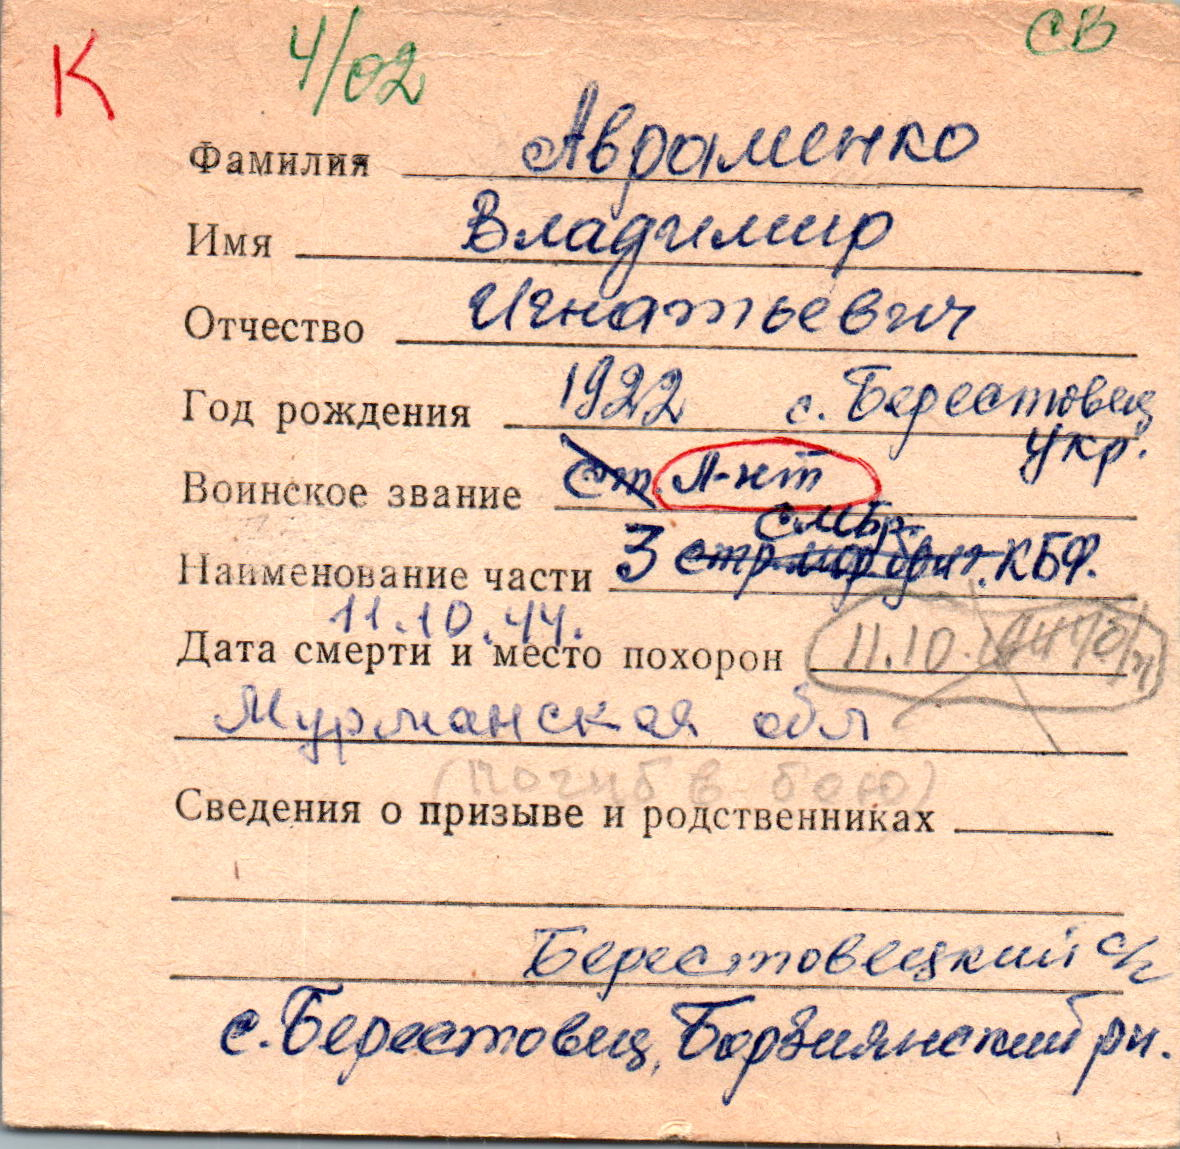 К 4/02 СВ
Фамилия Авраменко
Имя Владимир
Отчество Игнатьевич
Год рождения 1922 с. Берестовец
Укр.
Воинское звание Ст. Л-нт
СМБр.
Наименование части 3 стр. мор. бриг. КБФ.
11.10.44.
Дата смерти и место похорон 11.10.
Мурманская обл
(погиб в бою)
Сведения о призыве и родственниках
Берестовецкий с/с
с. Берестовец, Борзнянский рн.